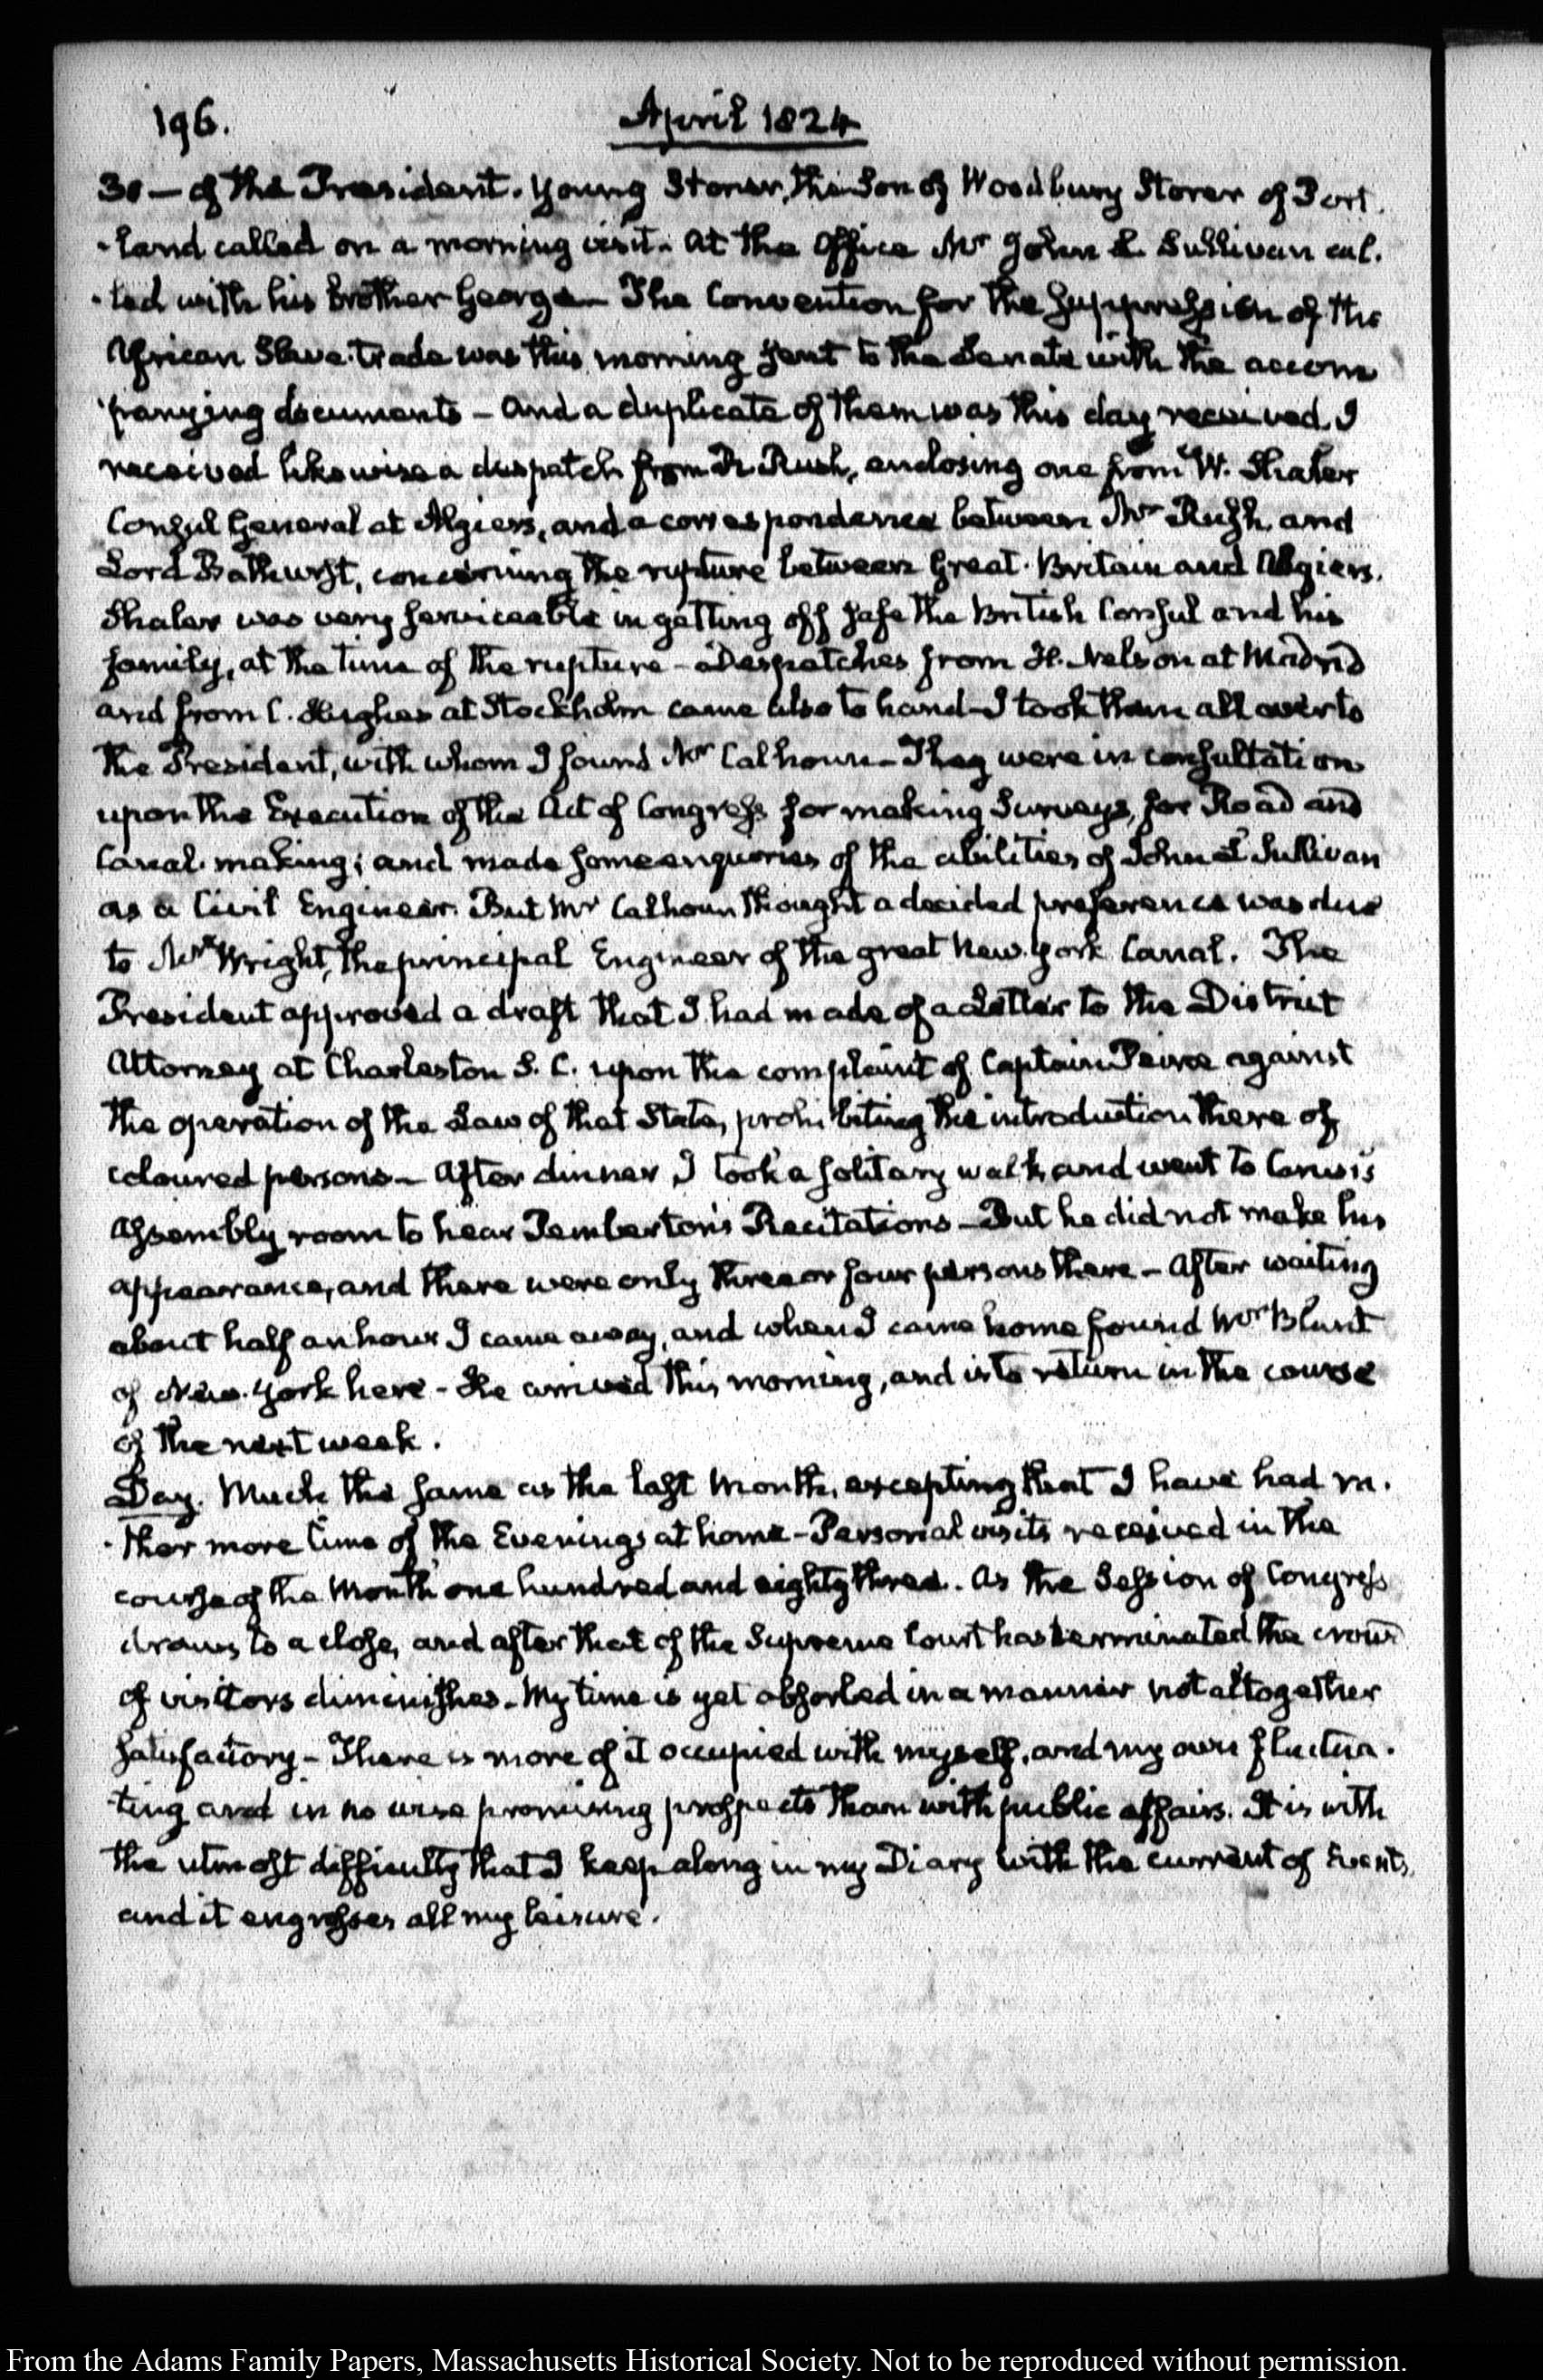 196.
April 1824
30 — of the President. Young Storer, the Son of Woodbury Storer of Port
-land called on a morning visit. At the Office Mr John L. Sullivan cal-
-led with his brother George — The Convention for the suppression of the
African Slave trade was this morning sent to the Senate with the accom
panying documents — and a duplicate of them was this day received. I
received likewise a despatch from R. Rush, enclosing one from W. Shaler
Consul General at Algiers, and a correspondence between Mr Rush, and
Lord Bathurst, concerning the rupture between Great-Britain and Algiers.
Shaler was very serviceable in getting off safe the British Consul and his
family, at the time of the rupture — Despatches from H. Nelson at Madrid
and from C. Hughes at Stockholm came also to hand — I took them all over to
the President, with whom I found Mr Calhoun — They were in consultation
upon the Execution of the Act of Congress for making Surveys, for Road and
Canal making; and made some enquiries of the abilities of John L Sullivan
as a Civil Engineer. But Mr Calhoun thought a decided preference was due
to Mr Wright, the principal Engineer of the great New-York Canal. The
President approved a draft that I had made of a Letter to the District
Attorney at Charleston S. C. upon the complaint of Captain Peirce against
the operation of the Law of that State, prohibiting the introduction there of
coloured persons — After dinner I took a solitary walk, and went to Carusi's
Assembly room to hear Pemberton's Recitations — But he did not make his
appearance, and there were only three or four persons there — After waiting
about half an hour I came away, and when I came home found Mr Blunt
of New-York here — He arrived this morning, and is to return in the course
of the next week.
Day. Much the same as the last Month, excepting that I have had ra-
-ther more time of the Evenings at home — Personal visits received in the
course of the Month one hundred and eighty three. As the Session of Congress
draws to a close, and after that of the Supreme Court has terminated the crowd
of visitors diminishes — My time is yet absorbed in a manner not altogether
satisfactory — There is more of it occupied with myself, and my own fluctua-
ting and in no wise promising prospects than with public affairs. It is with
the utmost difficulty that I keep along in my Diary with the current of Events,
and it engrosses all my leisure.
From the Adams Family Papers, Massachusetts Historical Society. Not to be reproduced without permission.